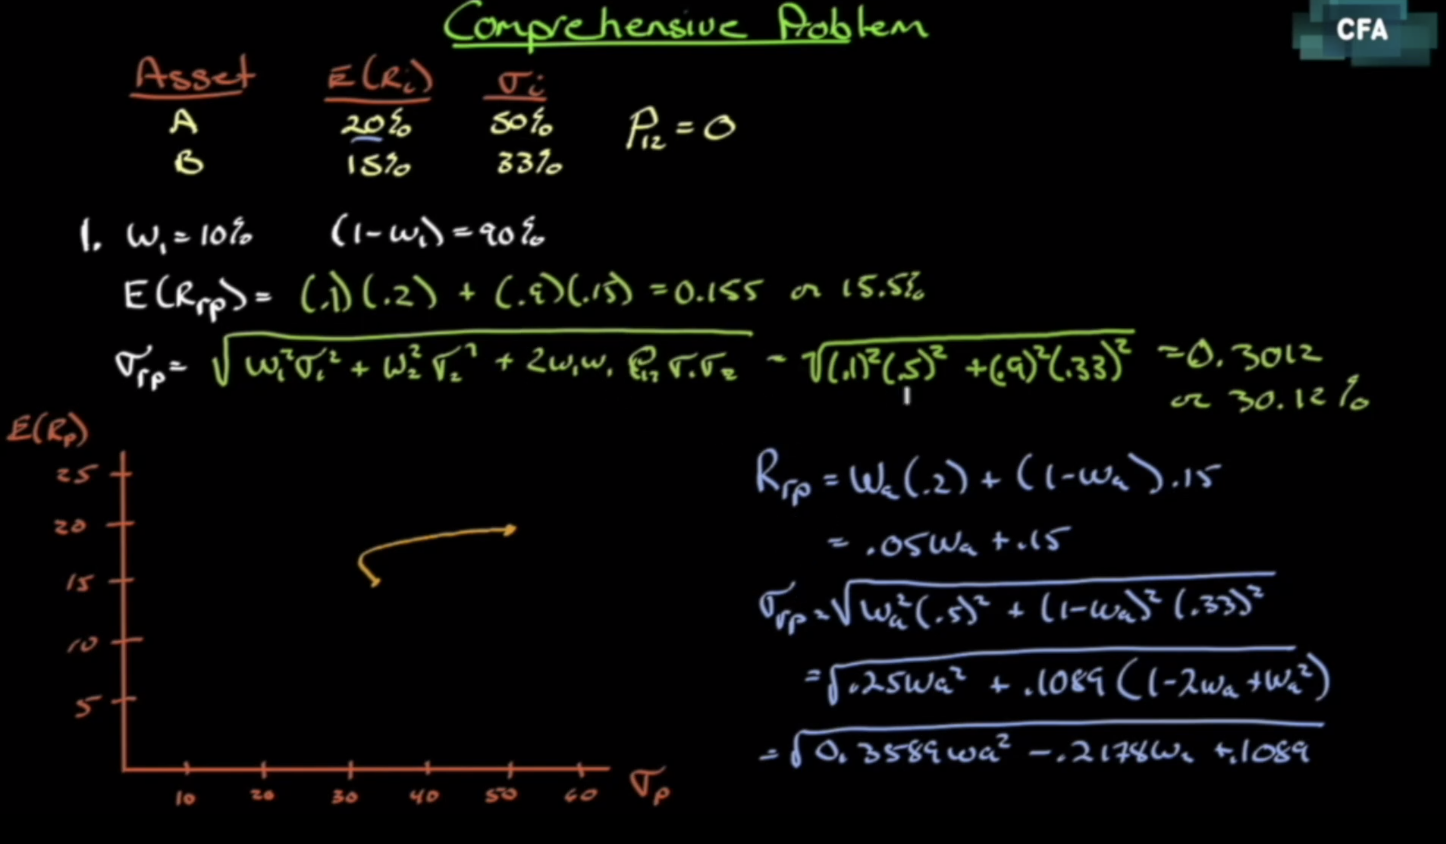 Comprehensive Problem
CFA
Asset E(Ri) σi
A 20% 50% ρ12 = 0
B 15% 33%
1. W1 = 10% (1-W1) = 90%
E(Rrp) = (.1)(.2) + (.9)(.15) = 0.155 or 15.5%
σrp = √(W1²σ1² + W2²σ2² + 2W1W1 ρ12 σ1σ2) = √((.1)²(.5)² + (.9)²(.33)²) = 0.3012
or 30.12%
E(Rp)
25
20
15
10
5
10 20 30 40 50 60 σp
Rrp = Wa(.2) + (1-Wa).15
= .05Wa + .15
σrp = √(Wa²(.5)² + (1-Wa)²(.33)²)
= √(.25Wa² + .1089(1-2Wa+Wa²))
= √(0.3589Wa² - .2178Wa + .1089)